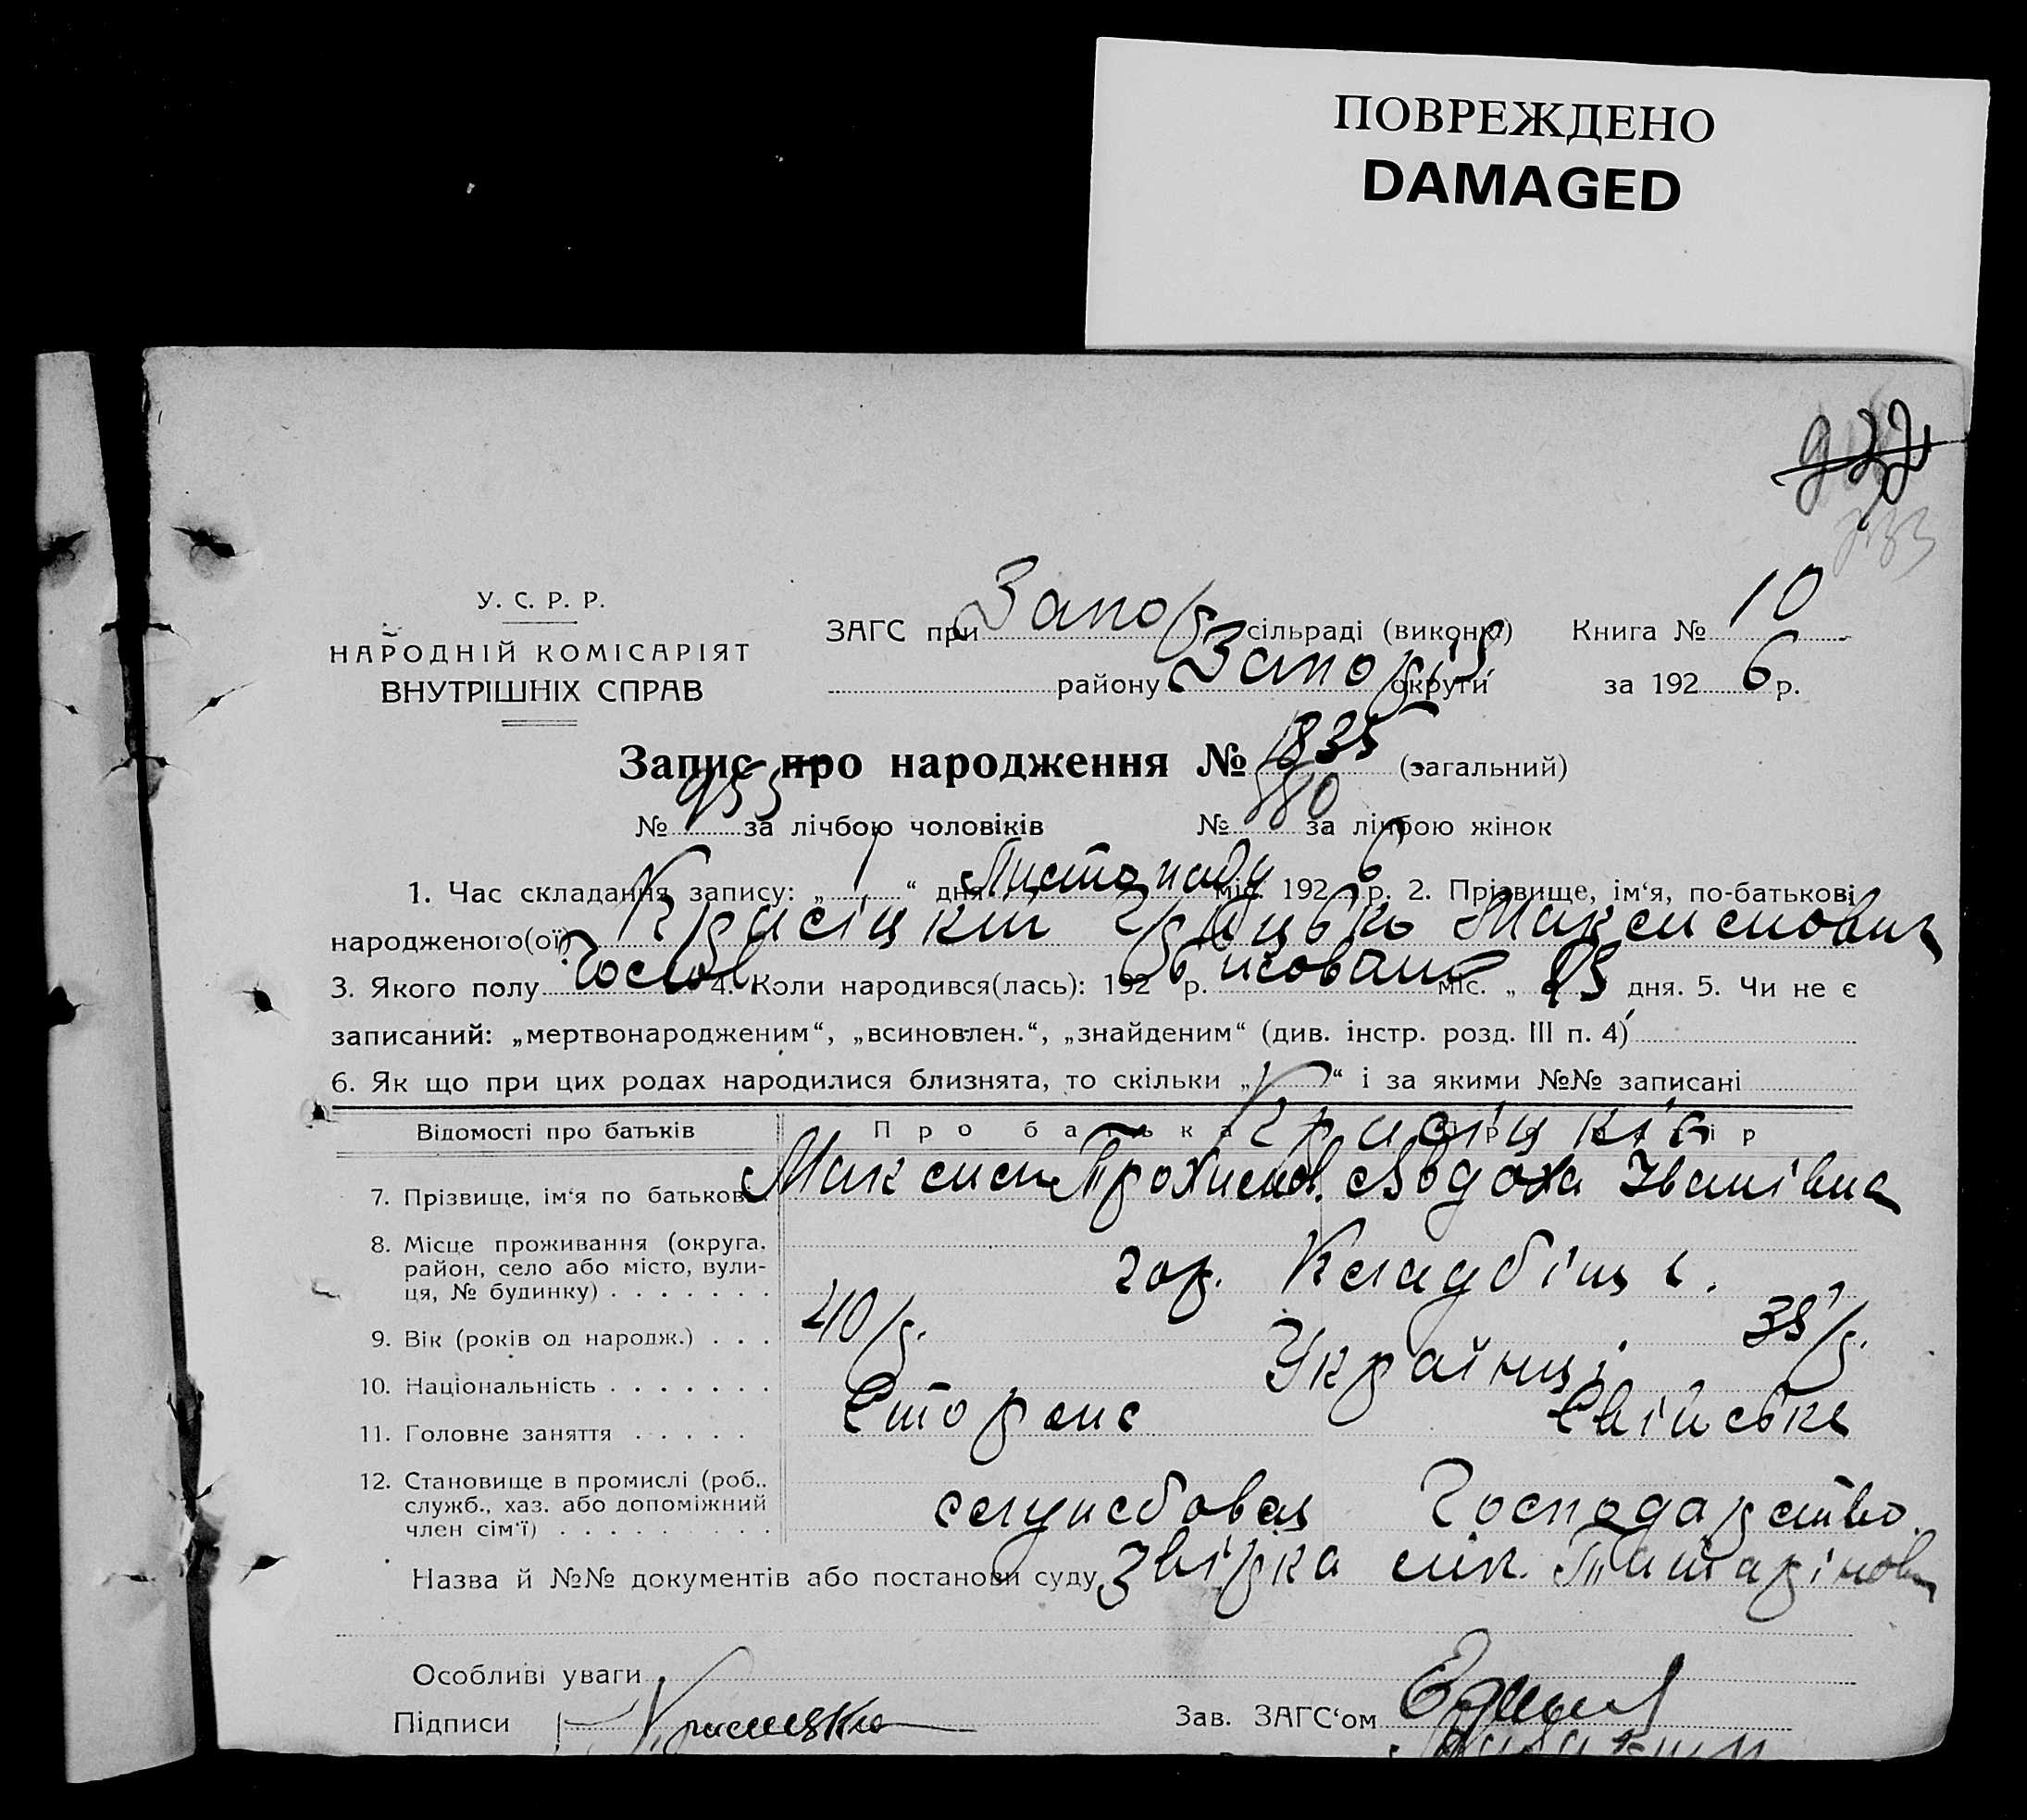 ПОВРЕЖДЕНО
DAMAGED
У. С. Р. Р.
НАРОДНІЙ КОМІСАРІЯТ
ВНУТРІШНІХ СПРАВ
ЗАГС при Запор сільраді (виконк.) Книга № 10
району Запор округи за 192 6 р.
Запис про народження № 1835 (загальний)
№ 955 за лічбою чоловіків № 880 за лічбою жінок
1. Час складання запису: „ 1 “ дня Листопаду міс. 192 6 р. 2. Прізвище, ім‘я, по-батькові
народженого(ої) Красіцкий Грицько Максимович
3. Якого полу 4. Коли народився(лась): 192 6 р. жовтня міс. „ дня. 5. Чи не є
записаний: „мертвонародженим“, „всиновлен.“, „знайденим“ (див. інстр. розд. III п. 4)
6. Як що при цих родах народилися близнята, то скільки „ “ і за якими №№ записані
Відомості про батьків Про батька Про матір
Красіцкі
7. Прізвище, ім‘я по батькові Максим Явдоха Іванівна
8. Місце проживання (округа,
район, село або місто, вули-
ця, № будинку) . . . . . . . гор. Кладбіще.
9. Вік (років од народж.) . . . 40 р. 38 р.
10. Національність . . . . . . . Українці
11. Головне заняття . . . . . Сторож Свійське
12. Становище в промислі (роб..
служб., хаз. або допоміжний
член сім‘ї) . . . . . . . . . службовец Господарство.
Назва й №№ документів або постанови суду
Особливі уваги
Підписи Зав. ЗАГС‘ом